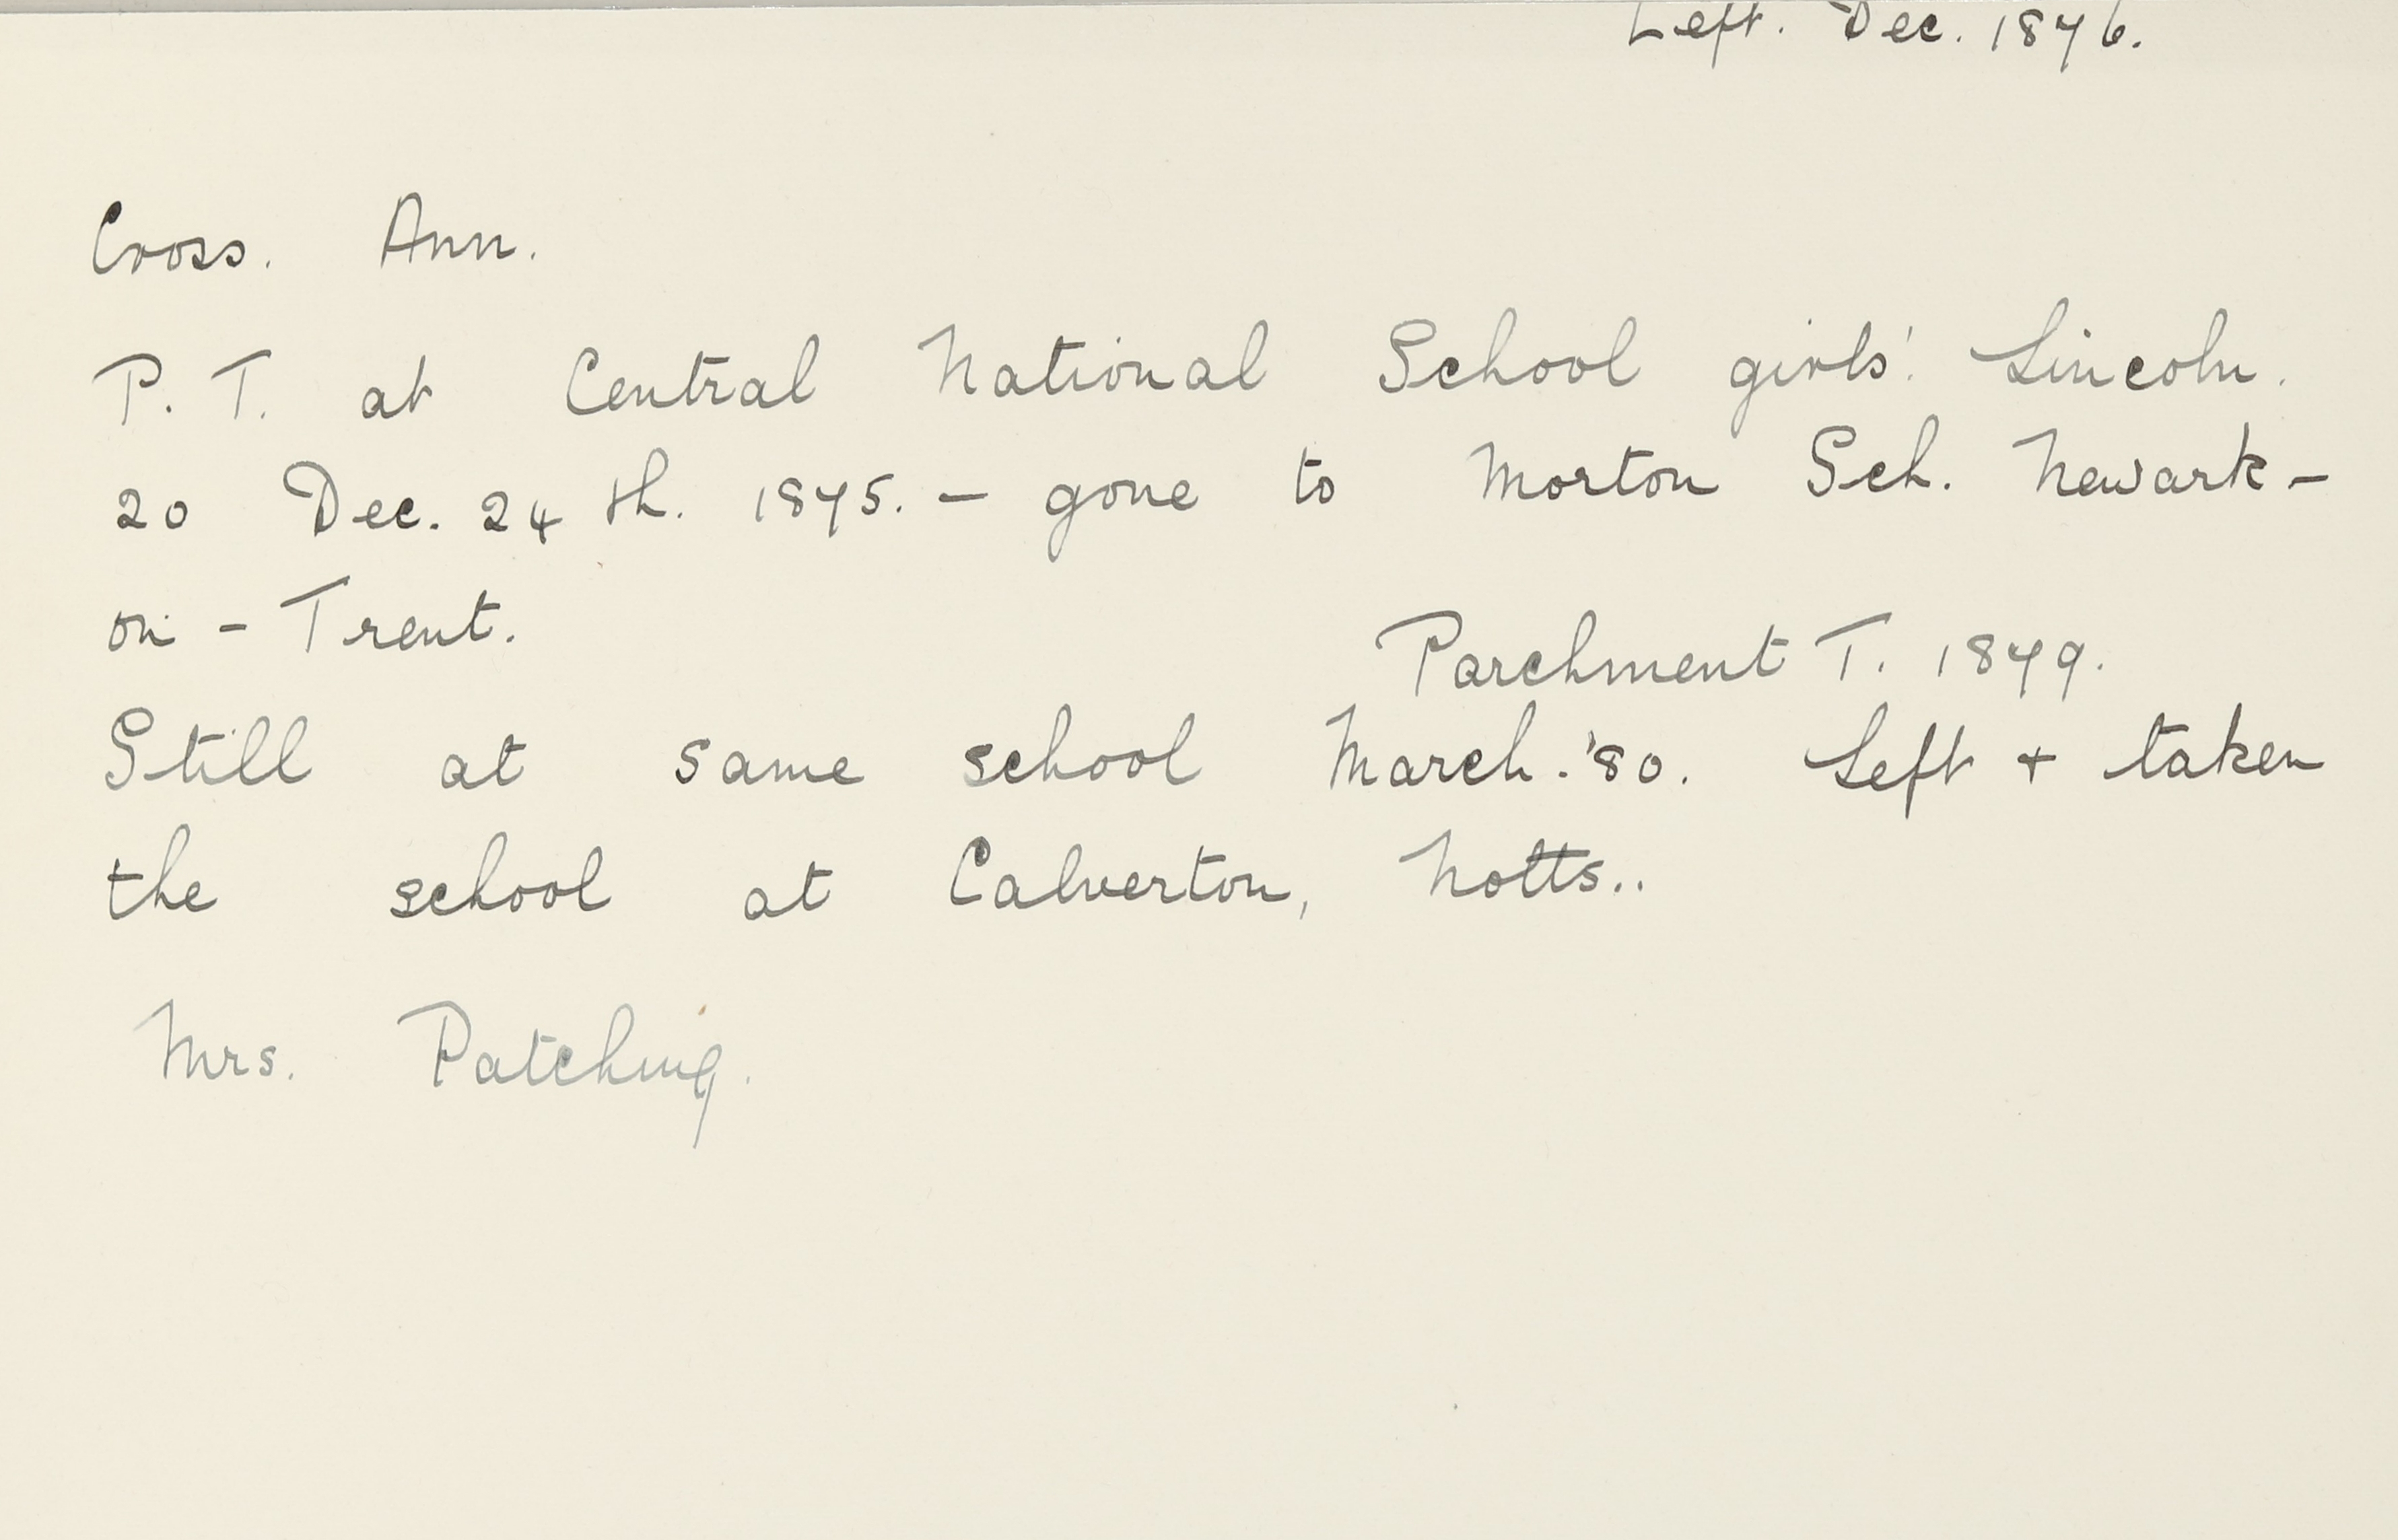 Left. Dec. 1876.
Cross. Ann.
P. T. at Central National School girls'. Lincoln.
20 Dec. 24th. 1875. - gone to Morton Sch. Newark -
on - Trent.
Parchment T. 1879.
Still at same school March. '80. Left + taken
the school at Calverton, Notts..
Mrs. Patching.